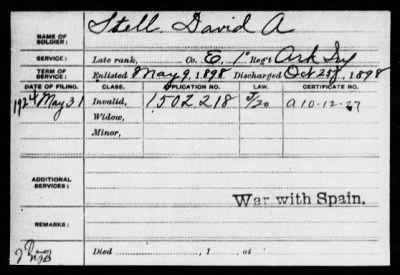 NAME OF SOLDIER: Stell David A
SERVICE: Late rank, Co. E, 1" Reg't Ark Inf
TERM OF SERVICE: Enlisted May 9, 1898 Discharged Oct 25, 1898
DATE OF FILING. CLASS. APPLICATION NO. LAW. CERTIFICATE NO.
1924 May 31 Invalid, 1502218 a 10-12-27
Widow,
Minor,
ADDITIONAL SERVICES:
War with Spain.
REMARKS:
Died , 1 , at